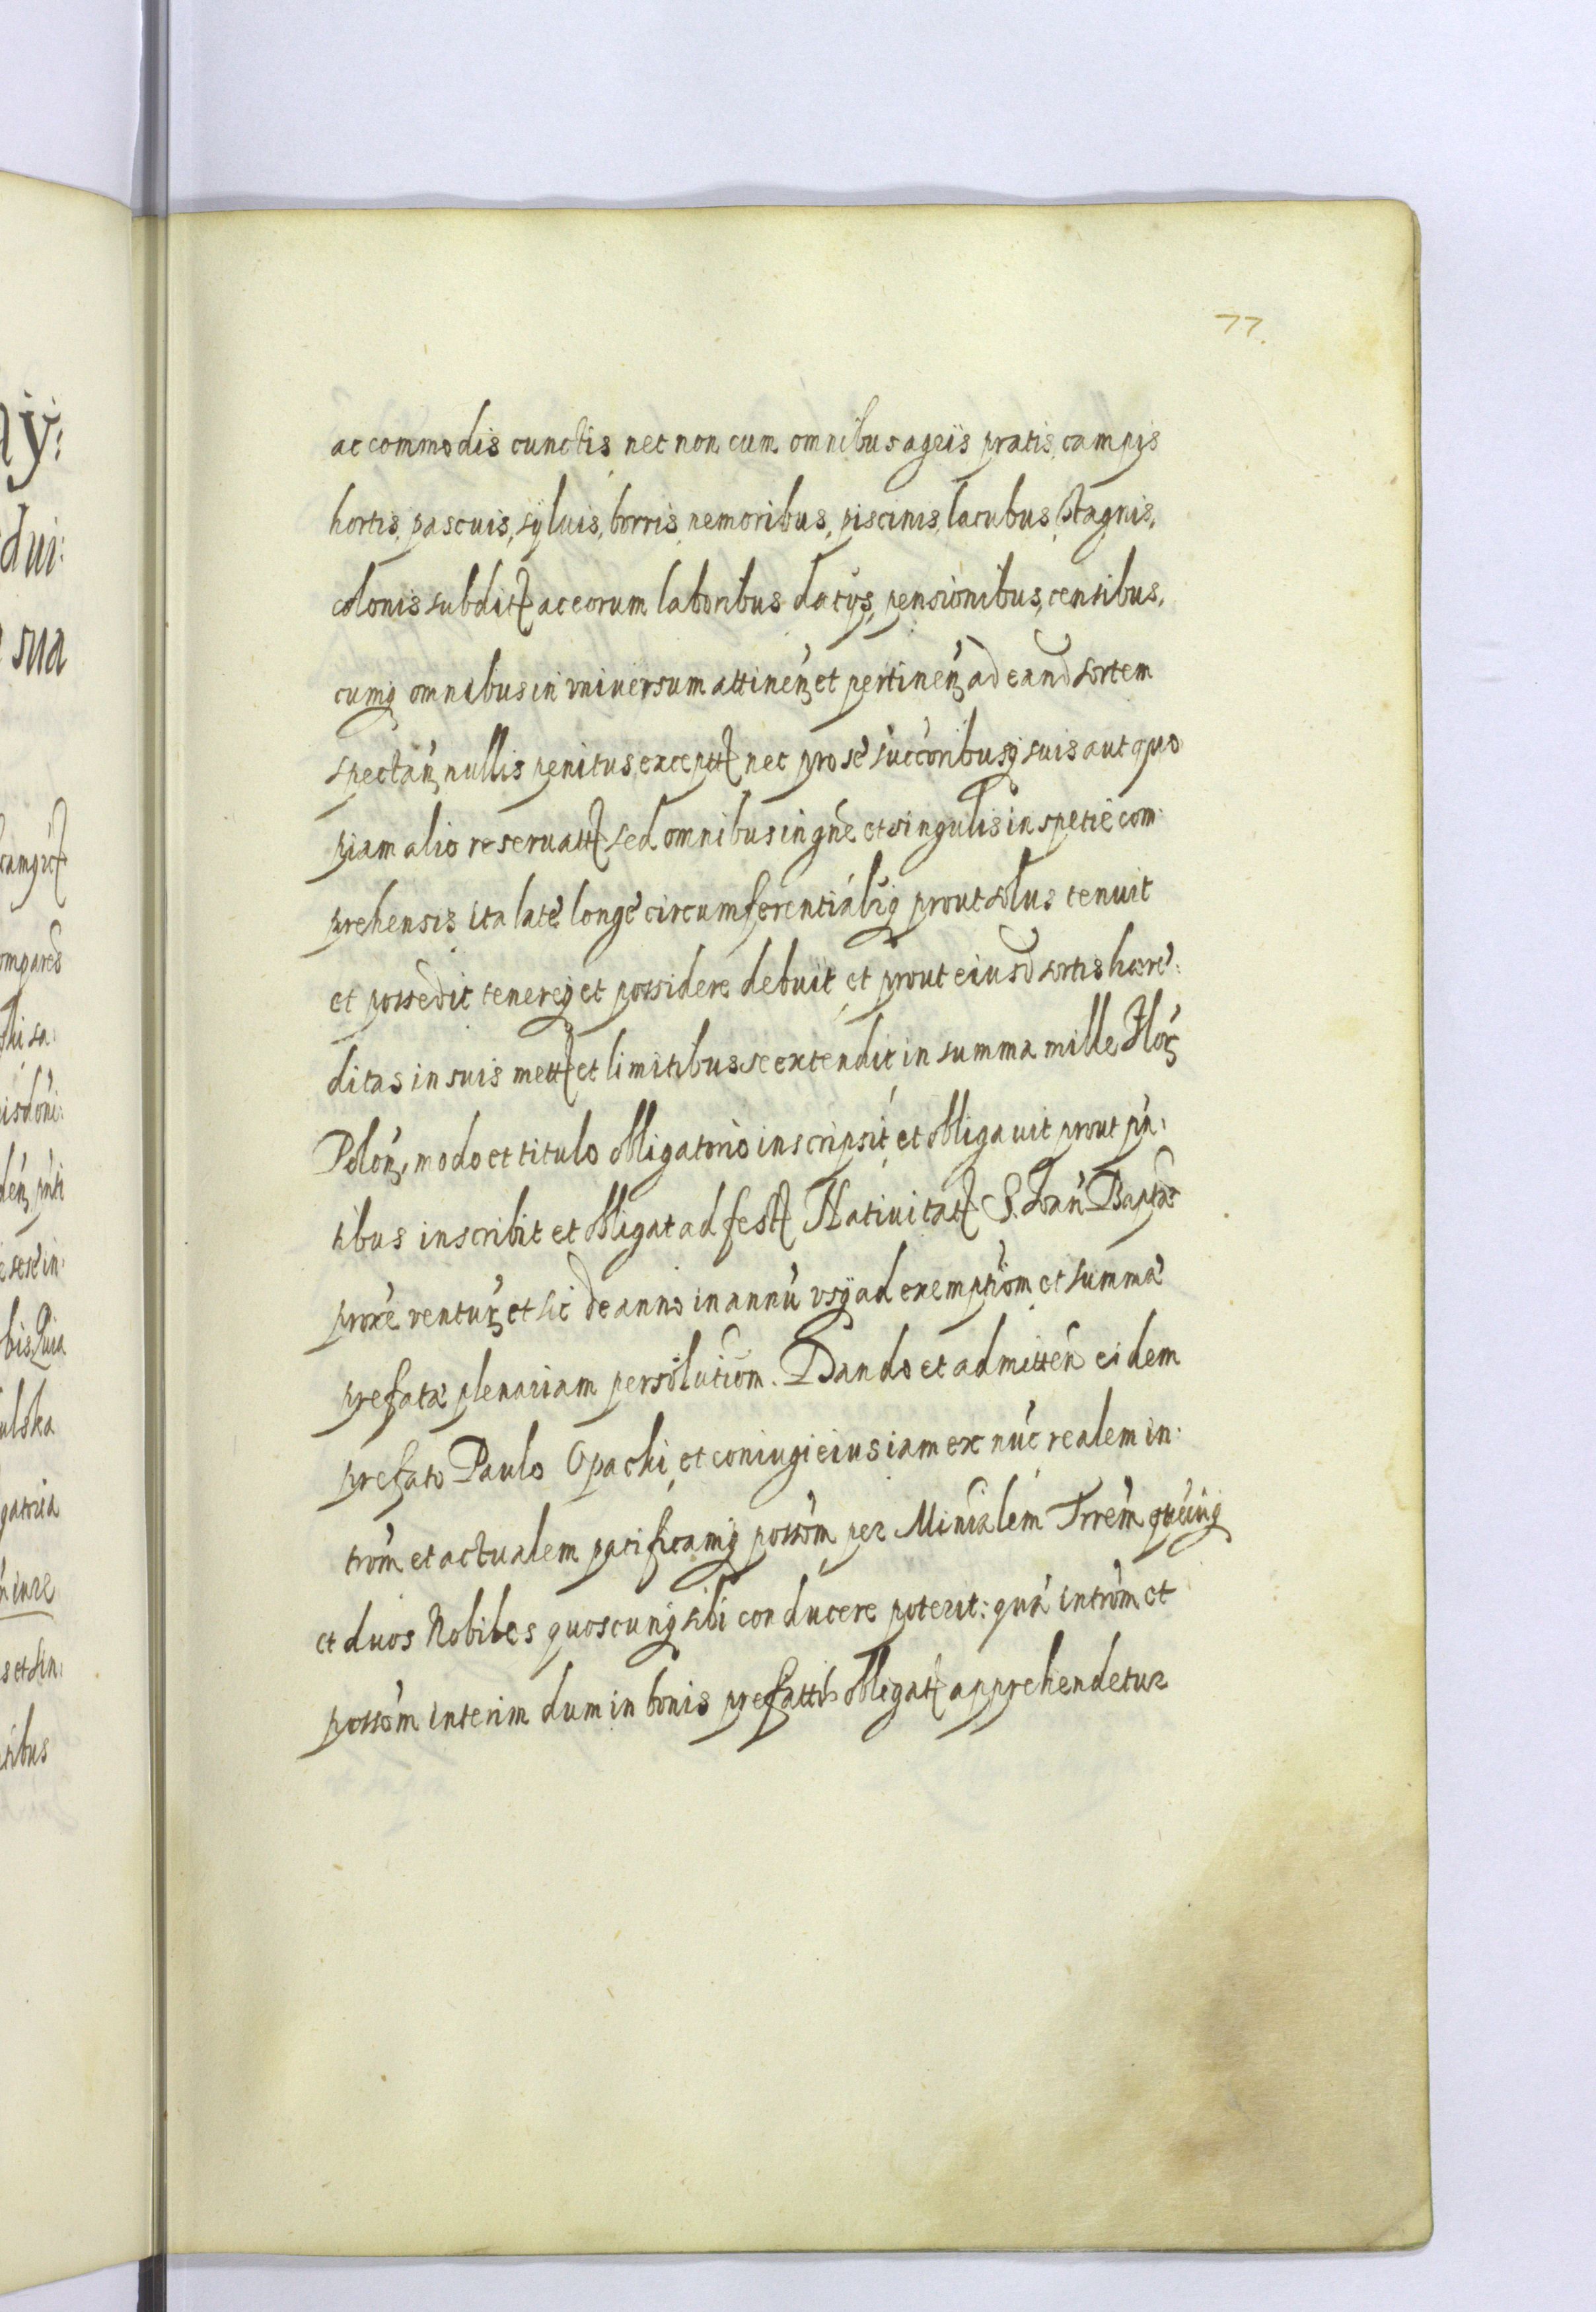 77.
ac commodis cunctis nec non cum omnibus agriis pratis, campis
hortis, pascuis, sÿluis, borris, nemoribus, piscinis, lacubus, stagnis,
colonis subditꝭ ac eorum laboribus datÿs, pensionibus, censibus,
cumq omnibus in vniuersum attinen̄ et pertinen̄ ad eand sortem
spectan̄ nullis penitus exceptꝭ nec pro se succoribusq suis aut quo
piam alio reseruatꝭ sed omnibus in gn̄e et singulis in spetie com:
prehensis ita late longe circumferentiabꝫq prout solus tenuit
et possedit tenereq et possidere debuit et prout eiusd sortis hære:
ditas in suis metꝭ et limitibus se extendit in summa mille Flor̄
Polon̄, modo et titulo obligatorio inscripsit, et obligauit prout pn̄:
tibus inscribit et obligat ad festꝭ Natiuitatꝭ S. Ioan̄ Baptæ
proxe ventur̄ et sic de anno in annū vsq ad exemptiōm et summæ
prefatæ plenariam persolutiōm. Dando et admitten̄ eidem
prefato Paulo Opachi, et coniugi eius iam ex nūc realem in:
trōm et actualem pacificamq possōm per Minialem Trrēm quēcūq
et duos Nobiles quoscunq sibi conducere poterit: quā intrōm et
possōm interim dum in bonis prefattis obligatꝭ apprehendetur
ÿ:
dui:
sua
ompared
ulska
gatoria
iure
et sin:
tibus